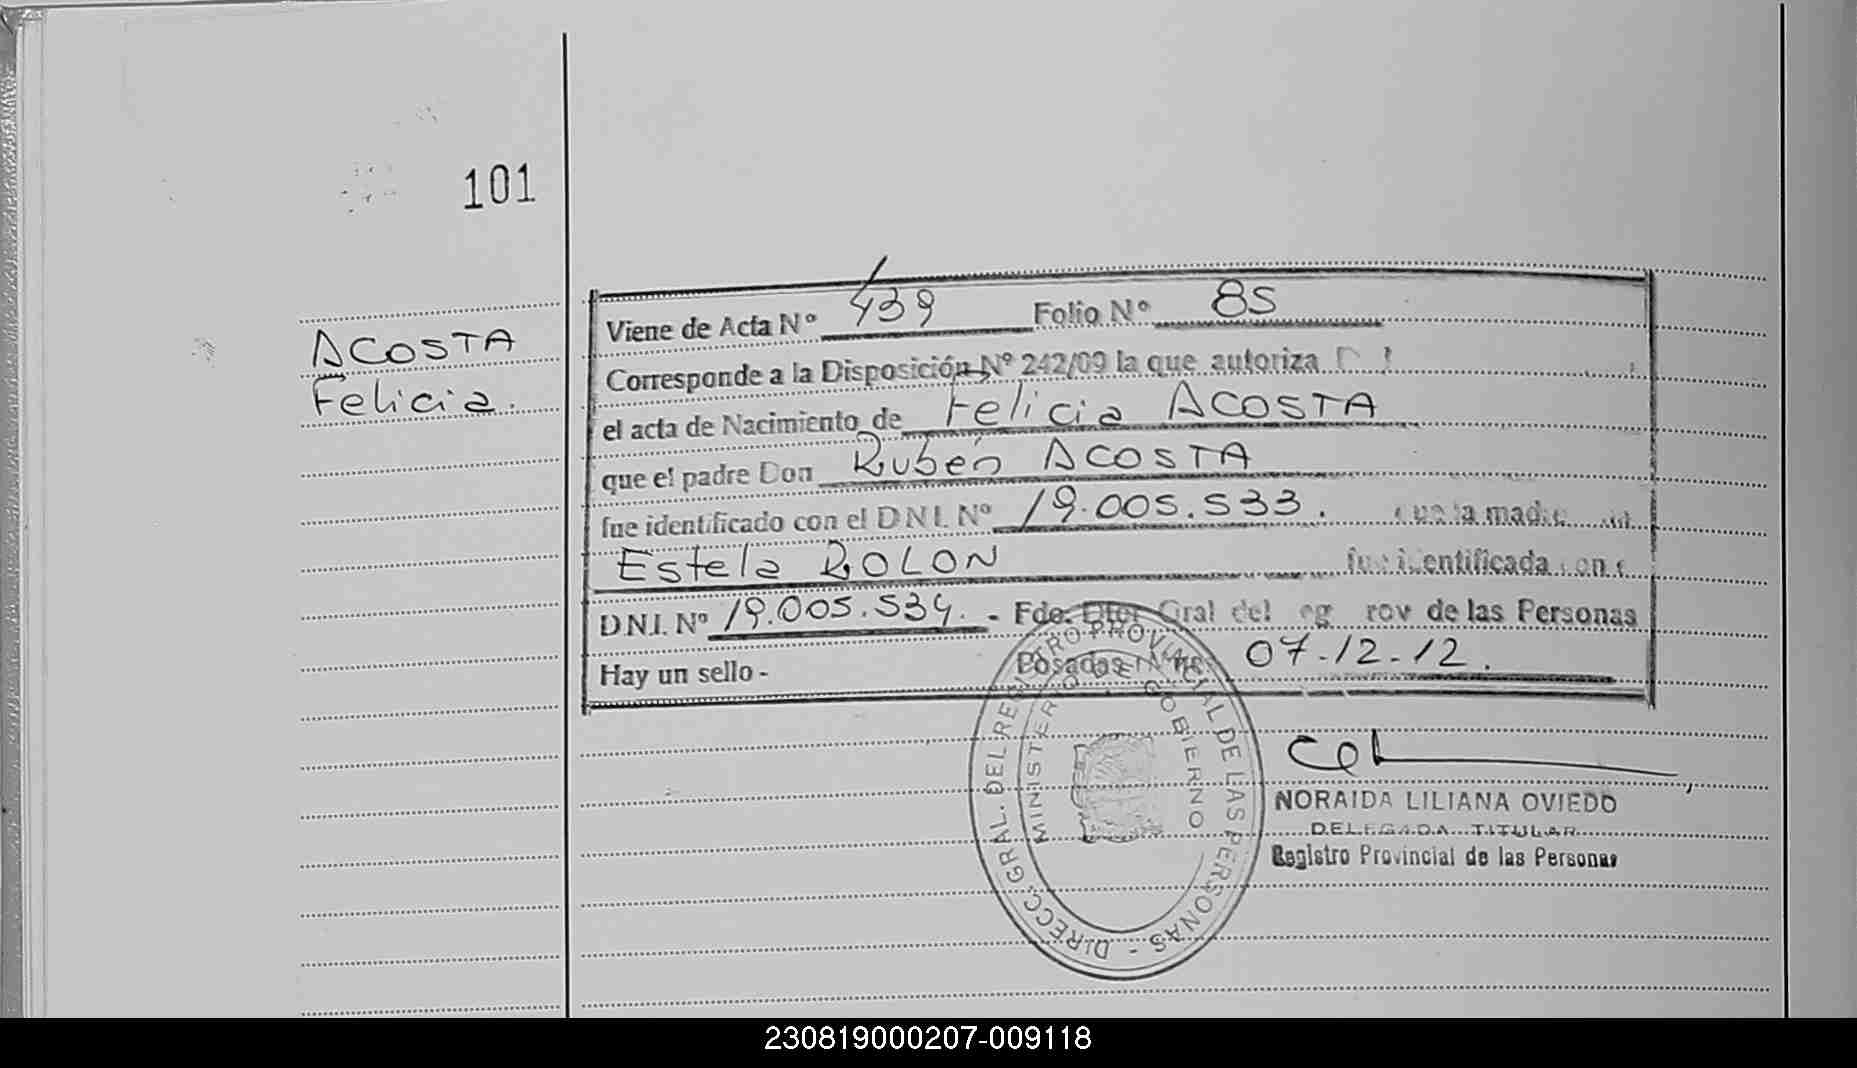 101
ACOSTA
Felicia.
Viene de Acta Nº 439 Folio Nº 85
Corresponde a la Disposición Nº 242/09 la que autoriza
el acta de Nacimiento de Felicia ACOSTA
que el padre Don Rubén ACOSTA
fue identificado con el D N I. Nº 19.005.533. que la madre
Estela ROLON fue identificada con
D.N.I. Nº 19.005.534. - Fdo. Dtor Gral del de las Personas
Hay un sello - Posadas 07-12-12.
DIRECC. GRAL. DEL REGISTRO PROVINCIAL DE LAS PERSONAS -
MINISTERIO DE GOBIERNO
NORAIDA LILIANA OVIEDO
DELEGADA TITULAR
Registro Provincial de las Personas
230819000207-009118